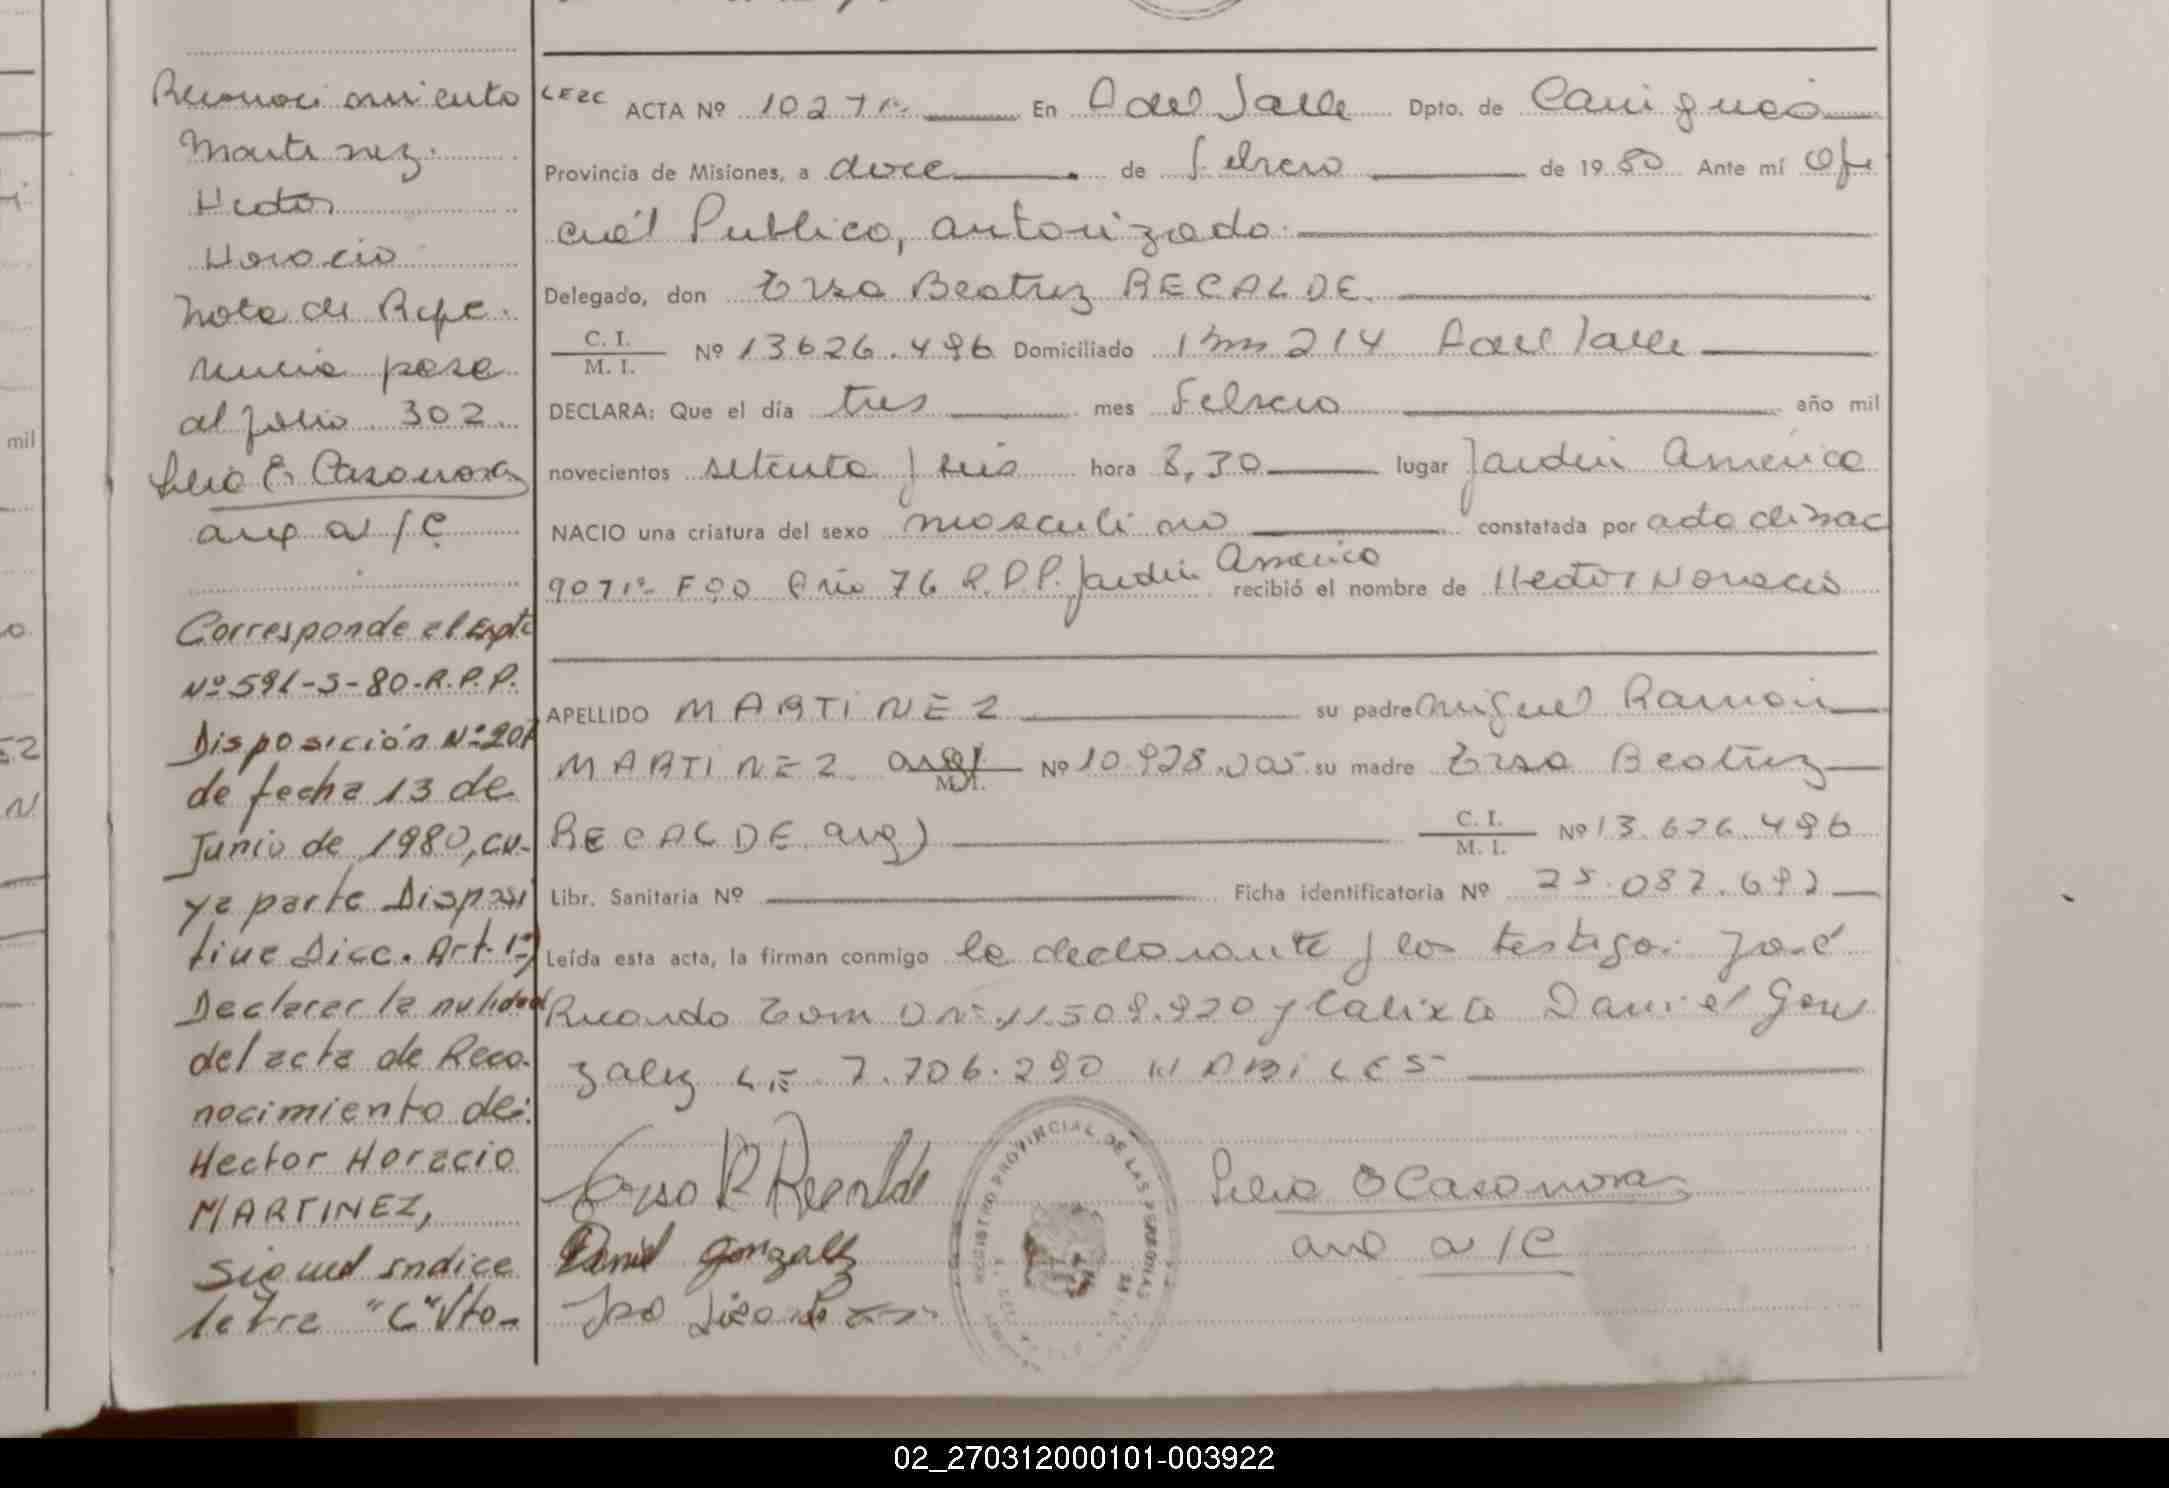 Reconocimiento
Martinez
Hector
Horacio
Nota de Refe.
rencia pasa
al folio 302.
E. Casanova
a/C
Corresponde al Expte
Nº 591-S-80-R.P.P.
Disposición Nº 207
de fecha 13 de
Junio de 1980, cu-
ya parte Disposi
tiva Dice. Art. 1º)
Declarar la nulidad
del acta de Reco-
nocimiento de:
Hector Horacio
MARTINEZ,
Sigue indice
letra "C" Vto-
ACTA Nº 1027 En A del Valle Dpto. de Cainguás
Provincia de Misiones, a doce de Febrero de 1980 Ante mí Ofi
cial Publico, autorizado.
Delegado, don Ersa Beatriz RECALDE.
C. I.
M. I. Nº 13626.496 Domiciliado Km 214 A del Valle
DECLARA: Que el día tres mes Febrero año mil
novecientos setenta y seis hora 8,30 lugar Jardin America
NACIO una criatura del sexo masculino constatada por
907 Año 76 R.P.P. Jardin America recibió el nombre de Hector Horacio
APELLIDO MARTINEZ su padre Miguel Ramón
MARTINEZ arg) M. I. Nº 10.928.205 su madre Ersa Beatriz
RECALDE arg) C. I.
M. I. Nº 13.626.496
Libr. Sanitaria Nº Ficha identificatoria Nº 25.087.692
Leída esta acta, la firman conmigo la declarante y los testigos: José
Ricardo 11.509.920 y Calixto Daniel Gon
zalez L.E. 7.706.290 HABILES
Daniel Gonzalez
Casanova
a/C
REGISTRO PROVINCIAL DE LAS PERSONAS
02_270312000101-003922